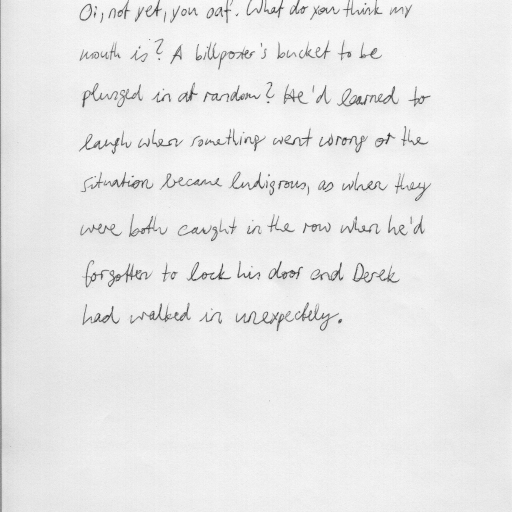 Oi, not yet, you oaf. What do you think my
mouth is? A billposter's bucket to be
plunged in at random? He'd learned to
laugh when something went wrong or the
situation became ludigrous, as when they
were both caught in the row when he'd
forgotten to lock his door and Derek
had walked in unexpectely.